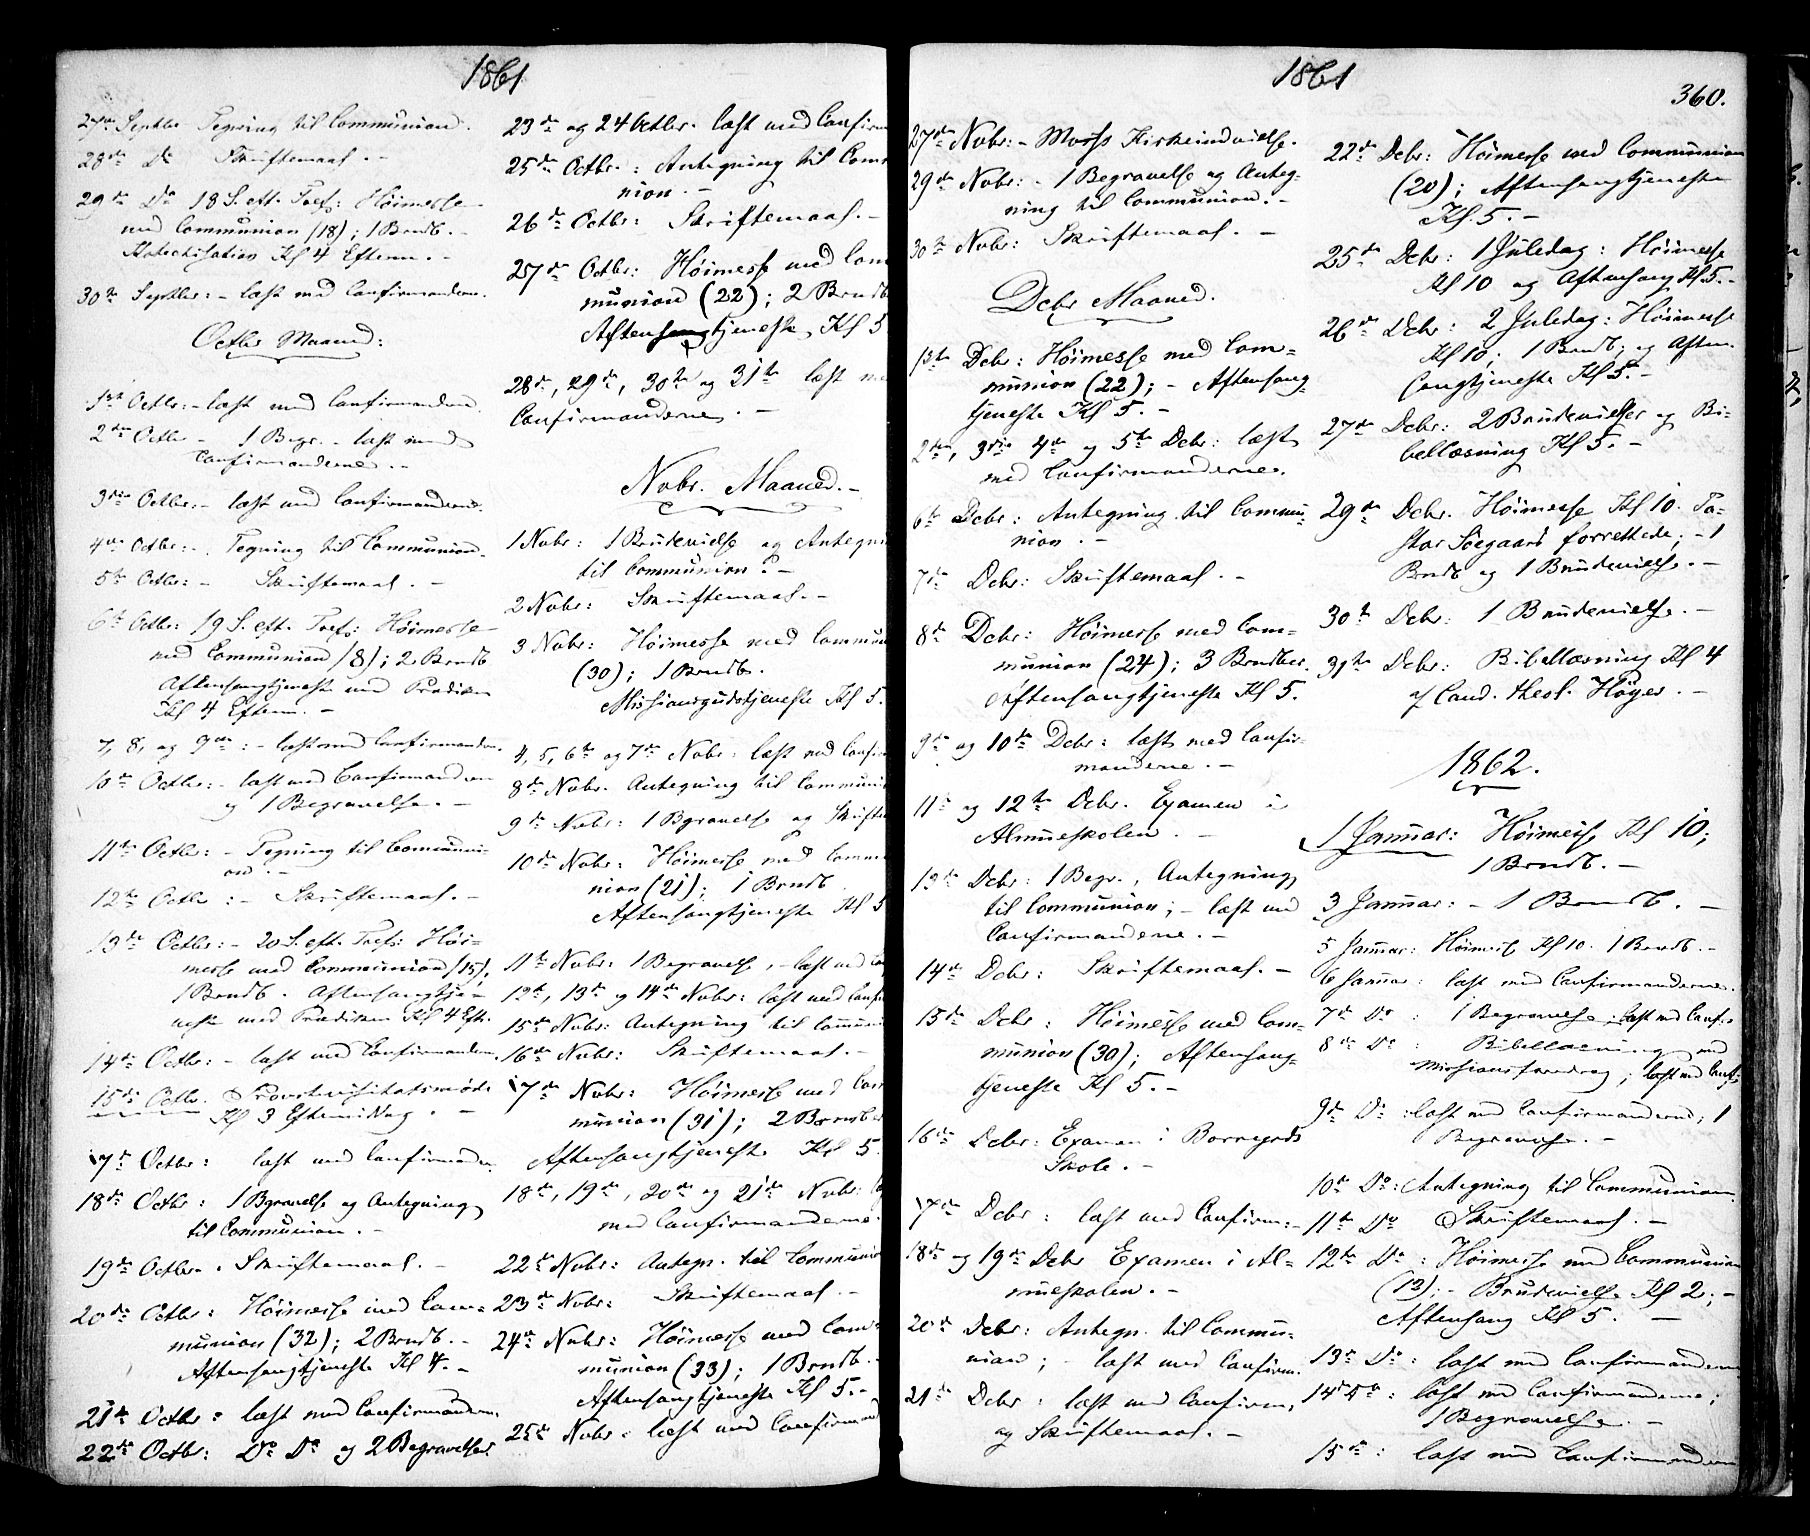 1861
27de Septbr Tegning til Communion.
28de Do Skriftemaal. -
29de Do 18 S. eft. Tref: Høimesse
med Communion (18); 1 Brndb. -
Katechisation Kl 4 Efterm. -
30te Septbr: - læst med Confirmanderne.
Octbr Maaned:
1ste Octbr: - læst med Confirmanderne.
2den Octbr - 1 Begr. - læst med
Confirmanderne. -
3die Octbr: - læst med Confirmanderne.
4de Octbr: - Tegning til Communion.
5te Octbr: - Skriftemaal. -
6te Octbr: 19 S. eft. Tref: Høimesse
med Communion (8); 2 Brndb.
Aftensangtjeneste med Prædiken
Kl 4 Efterm. -
7, 8, og 9de: - læst med Confirmanderne.
10de Octbr: - læst med Confirmanderne
og 1 Begravelse. -
11te Octbr: - Tegning til Communi-
on. -
12te Octbr: - Skriftemaal. -
13de Octbr: - 20 S. eft. Tref: Høi-
messe med Communion (15),
1 Brndb. Aftensangtje-
neste med Prædiken Kl 4 Eft.
14de Octbr: - læst med Confirmanderne.
15de Octbr. Provstevisitatsmøde
Kl 3 Eftermiddag. -
17de Octbr: læst med Confirmanderne
18de Octbr: 1 Bgravelse og Antegning
til Communion. -
19de Octbr. Skriftemaal. -
20de Octbr: Høimesse med Com-
munion (32); 2 Brndb. -
Aftensangtjeneste Kl 4. -
21de Octbr: læst med Confirmanderne.
22de Octbr: Do Do og 2 Begravelser.
23de og 24 Octbr. læst med Confirm
25de Octbr.: Antegning til Com
nion. -
26de Octbr: Skriftemaal. -
27de Octbr: Høimesse med Com
munion (22); 2 Brndb
Aftensangtjeneste, Kl 5
28de, 29de, 30te og 31te læst me
Confirmanderne. -
Nobr. Maaned. -
1 Nobr: 1 Brudevielse og Antegni
til Communion. -
2 Nobr: Skriftemaal. -
3 Nobr: Høimesse med Commun
(30); 1 Brndb.
Missionsgudstjeneste Kl 5.
4, 5, 6te og 7de Nobr: læst med Confir
8de Nobr. Antegning til Communi
9de Nobr: 1 Bgravelse og Skrifte
10de Nobr: Høimesse med Commu
nion (21); 1 Brndb.
Aftensangtjeneste Kl 5
11te Nobr: 1 Begravelse, - læst med Co
12te, 13de og 14de Nobr: læst med Confi
15de Nobr: Antegning til Communi
16de Nobr: Skriftemaal. -
17de Nobr: Høimesse med Com
munion (31); 2 Barnedb
Aftensangtjeneste Kl 5.
18de, 19de, 20de og 21de Nobr: læ
med Confirmanderne.
22de Nobr: Antegn. til Communio
23de Nobr: Skriftemaal. -
24de Nobr: Høimesse med Com-
munion (33); 1 Brndb. -
Aftensangtjeneste Kl 5. -
25de Nobr: læst med Confirmand
1861
360.
27de Nobr: - Moss Kirkeindvielse.
29de Nobr: - 1 Begravelse og Anteg-
ning til Communion. -
30te Nobr: Skriftemaal. -
Decbr Maaned.
1ste Decbr: Høimesse med Com-
munion (22); - Aftensang-
tjeneste Kl 5. -
2den, 3die 4de og 5te Decbr: læst
med Confirmanderne.
6te Decbr: Antegning til Commu-
nion. -
7de Decbr: Skriftemaal. -
8de Decbr: Høimesse med Com-
munion (24); 3 Brndber.
Aftensangtjeneste Kl 5.
9de og 10de Decbr: læst med Confir-
manderne. -
11te og 12te Decbr. Examen i
Almueskolen. -
13de Decbr: 1 Begr., Antegning
til Communion; - læst med
Confirmanderne. -
14de Decbr: Skriftemaal. -
15de Decbr: Høimesse med Com-
munion (30); Aftensang-
tjeneste Kl 5. -
16de Decbr: Examen i Borregaards
Skole. -
17de Decbr: læst med Confirm: -
18de og 19de Decbr Examen i Al-
mueskolen. -
20de Decbr: Antegn. til Commu-
nion; - læst med Confirm.
21de Decbr: læst med Confirm,
og Skriftemaal. -
22de Decbr: Høimesse med Communion
(20); Aftensangtjeneste
Kl. 5. -
25de Decbr: 1 Juledag: Høimesse
Kl 10 og Aftensang Kl 5. -
26de Decbr: 2 Juledag: Høimesse
Kl 10. 1 Brndb; og Aften-
sangtjeneste Kl 5. -
27de Decbr: 2 Brudevielser og Bi-
bellæsning Kl 5. -
29de Decbr. Høimesse Kl 10. Pa-
stor Søegaard forrettede; - 1
Brndb og 1 Brudevielse. -
30te Decbr: 1 Brudevielse. -
31te Decbr: Bibellæsning Kl 4
af Cand. theol. Höyer. -
1862.
1 Januar: Høimesse Kl 10;
1 Brndb. -
3 Januar: - 1 Brndb. -
5 Januar: Høimesse Kl 10. 1 Brndb. -
6 Januar: læst med Confirmanderne.
7de Do: 1 Begravelse; læst med Confir
8de Do: Bibellæsning med
Missionsforedrag; læst med Conf:
9de Do: læst med Confirmanderne; 1
Begravelse. -
10de Do: Antegning til Communion.
11te Do Skriftemaal. -
12te Do: Høimesse med Communion
(13); - Brudevielse Kl 2; -
Aftensang Kl 5. -
13de Do: læst med Confirmanderne
14de Do: læst med Confirmanderne;
1 Begravelse. -
15de: læst med Confirmanderne